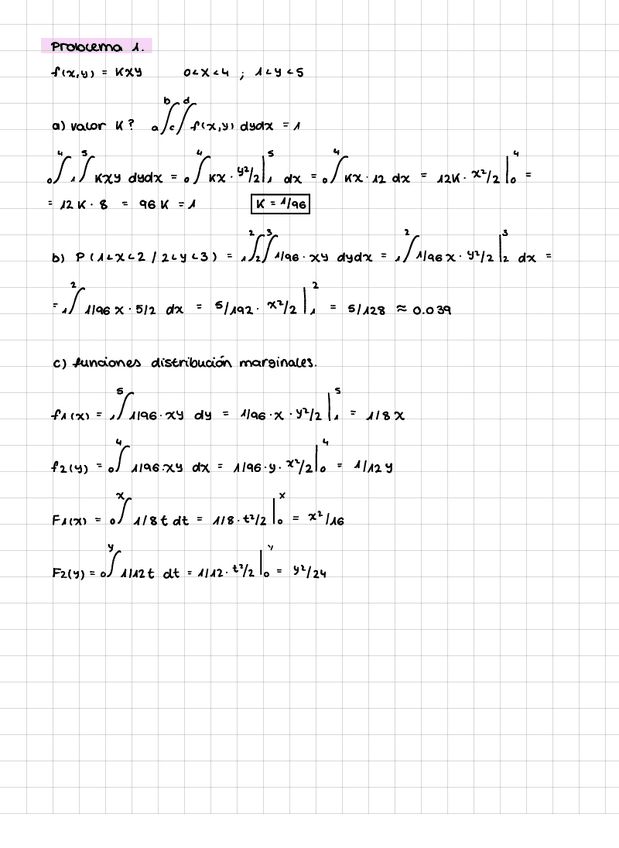 Problema 1.
f(x,y) = Kxy 0<x<4 ; 1<y<5
a) valor K? ₐ∫ᵇ ᶜ∫ᵈ f(x,y) dydx = 1
₀∫⁴ ₁∫⁵ Kxy dydx = ₀∫⁴ Kx · y²/2 |₁⁵ dx = ₀∫⁴ Kx · 12 dx = 12K · x²/2 |₀⁴ =
= 12K · 8 = 96K = 1 K = 1/96
b) P(1<x<2 / 2<y<3) = ₁∫² ₂∫³ 1/96 · xy dydx = ₁∫² 1/96 x · y²/2 |₂³ dx =
= ₁∫² 1/96 x · 5/2 dx = 5/192 · x²/2 |₁² = 5/128 ≈ 0.039
c) funciones distribución marginales.
f1(x) = ₁∫⁵ 1/96 · xy dy = 1/96 · x · y²/2 |₁⁵ = 1/8 x
f2(y) = ₀∫⁴ 1/96 · xy dx = 1/96 · y · x²/2 |₀⁴ = 1/12 y
F1(x) = ₀∫ˣ 1/8 t dt = 1/8 · t²/2 |₀ˣ = x²/16
F2(y) = ₀∫ʸ 1/12 t dt = 1/12 · t²/2 |₀ʸ = y²/24